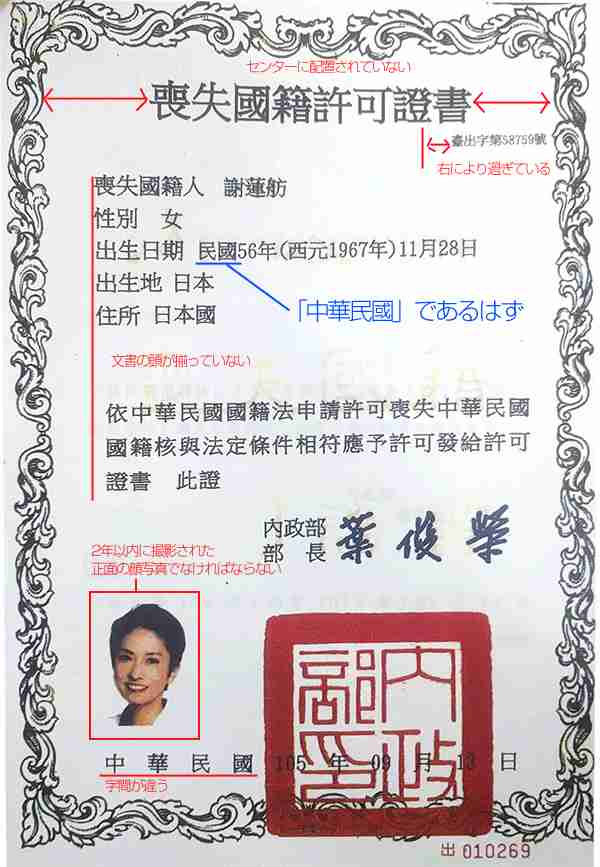 センターに配置されていない
喪失國籍許可證書
臺出字第58759號
右により過ぎている
喪失國籍人 謝蓮舫
性別 女
出生日期 民國56年(西元1967年)11月28日
出生地 日本
住所 日本國
「中華民國」であるはず
文書の頭が揃っていない
依中華民國國籍法申請許可喪失中華民國
國籍核與法定條件相符應予許可發給許可
證書 此證
內政部
部 長 葉俊榮
2年以内に撮影された
正面の顔写真でなければならない
內政
部印
中 華 民 國 105 年 09 月 13 日
字間が違う
出 010269